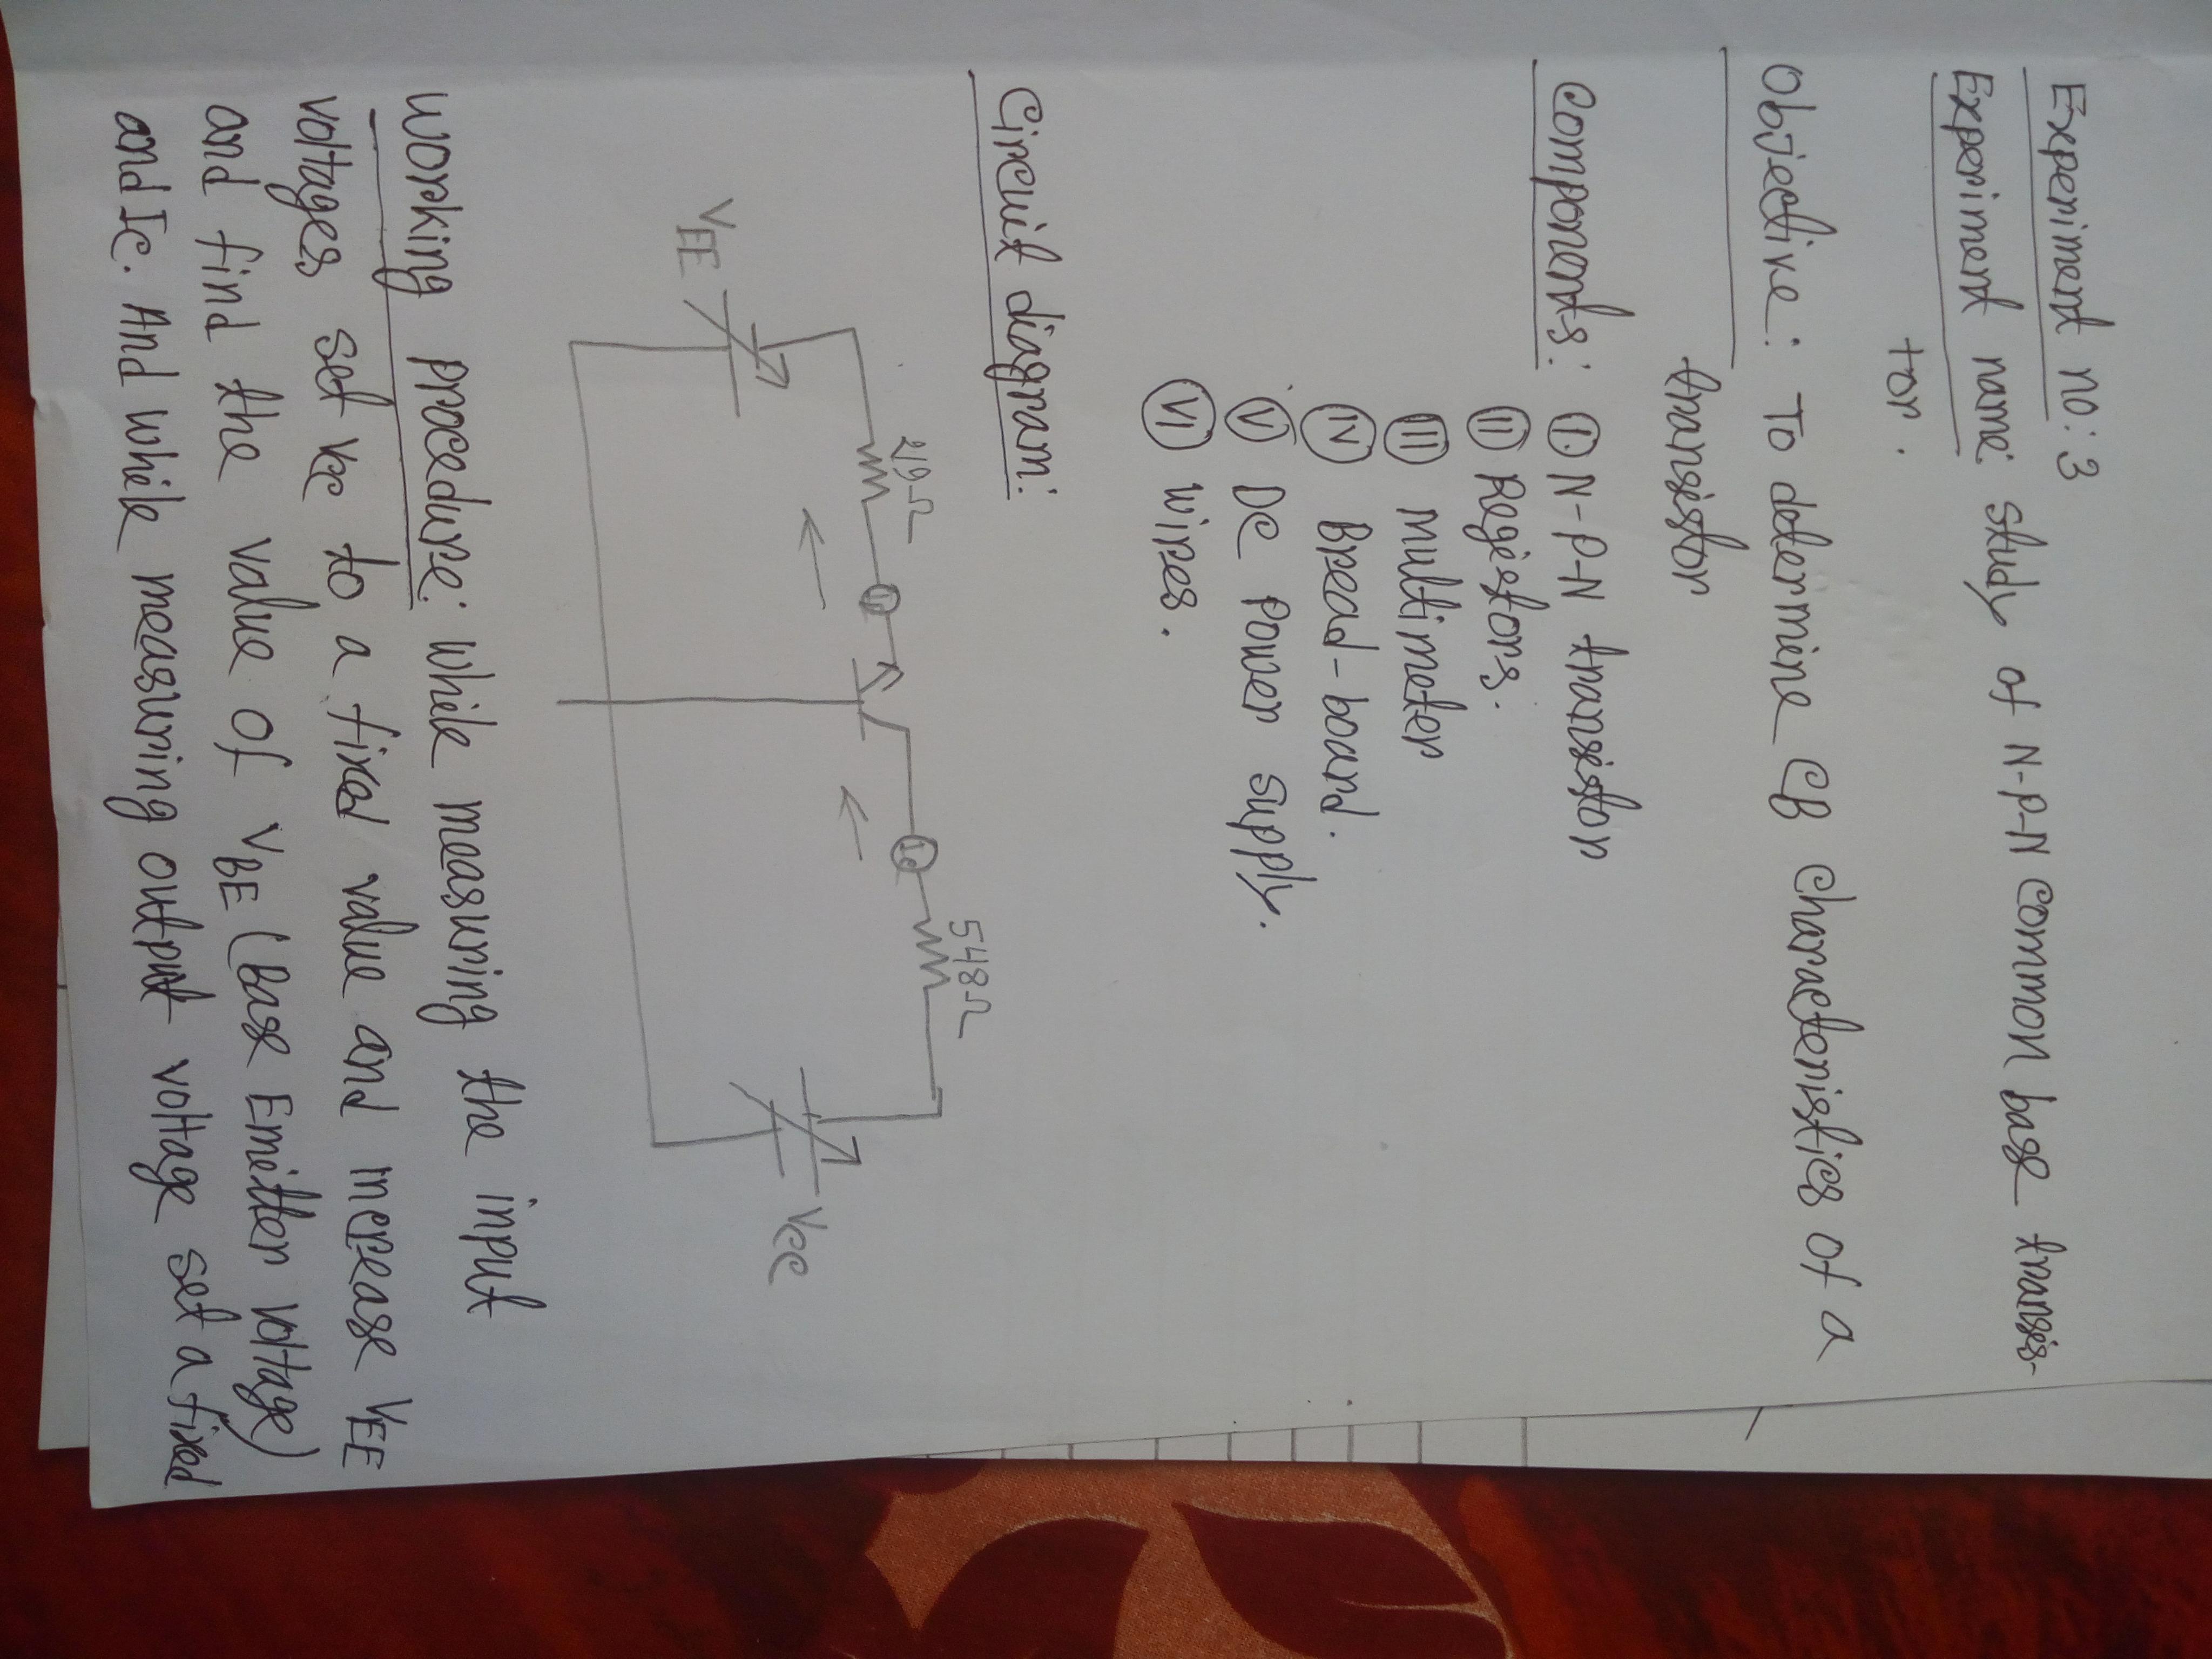 Experiment no: 3
Experiment name: study of N-P-N common base transis-
tor.
Objective: To determine CB characteristics of a
transistor
Components: I. N-P-N transistor
II Registors.
III multimeter
IV Bread-board.
V DC Power supply.
VI wires.
Circuit diagram:
548Ω
219Ω
Ic
VCC
VEE
Working procedure: While measuring the input
voltages set Vcc to a fixed value and increase VEE
and find the value of VBE (Base Emitter voltage)
and Ic. And while measuring output voltage set a fixed